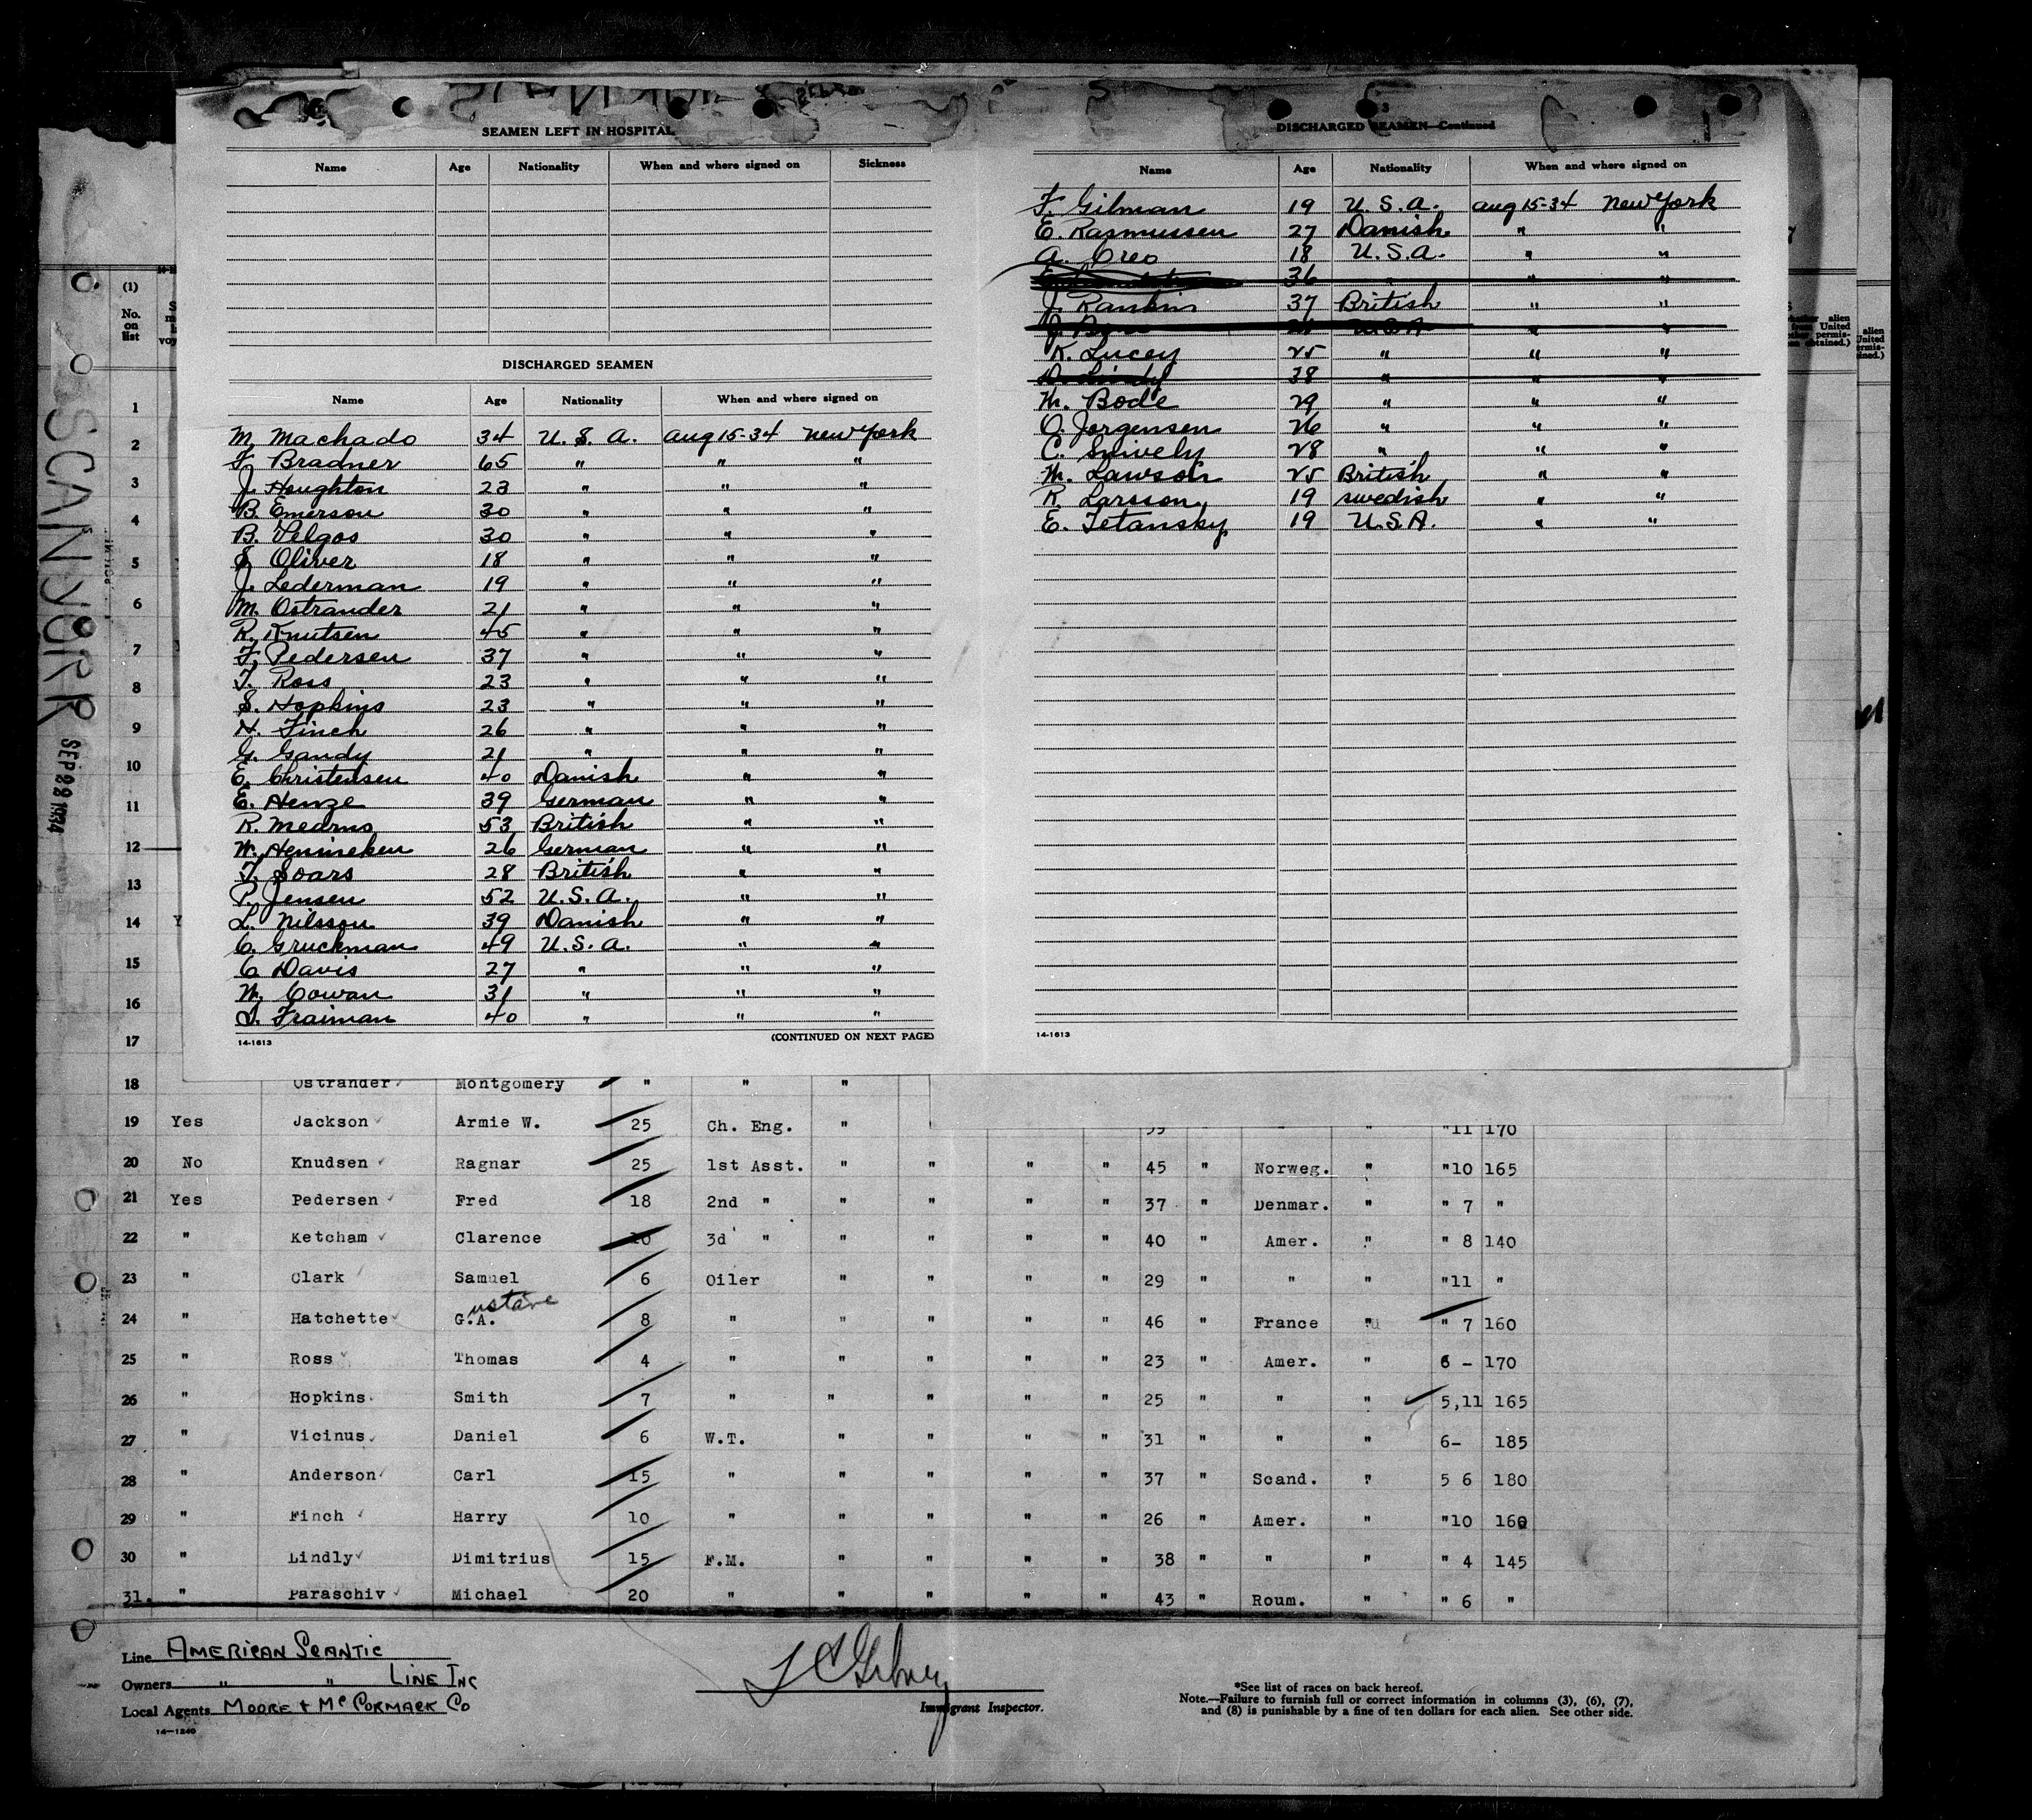 SEAMEN LEFT IN HOSPITAL
Name Age Nationality When and where signed on Sickness
DISCHARGED SEAMEN
Name Age Nationality When and where signed on
M. Machado 34 U. S. A. Aug 15-34 New York
F. Bradner 65 " " "
J. Houghton 23 " " "
B. Emerson 30 " " "
B. Velgos 30 " " "
S. Oliver 18 " " "
J. Lederman 19 " " "
M. Ostrander 21 " " "
R. Knutsen 45 " " "
F. Pedersen 37 " " "
T. Ross 23 " " "
S. Hopkins 23 " " "
H. Finch 26 " " "
G. Gandy 21 " " "
E. Christensen 40 Danish " "
E. Henze 39 German " "
R. Mearns 53 British " "
W. Henneken 26 German " "
T. Soars 28 British " "
P. Jensen 52 U.S.A. " "
L. Nilsson 39 Danish " "
C. Gruckman 49 U.S.A. " "
C. Davis 27 " " "
W. Cowan 31 " " "
S. Fraiman 40 " " "
14-1613 (CONTINUED ON NEXT PAGE)
3
DISCHARGED SEAMEN—Continued
Name Age Nationality When and where signed on
F. Gilman 19 U.S.A. Aug 15-34 New York
E. Rasmussen 27 Danish " "
A. Creo 18 U.S.A. " "
36 " " "
J. Rankin 37 British " "
J. U.S.A. " "
K. Lucey 25 " " "
D. Lindly 38 " " "
W. Bode 29 " " "
O. Jorgensen 26 " " "
C. Snively 28 " " "
W. Lawson 25 British " "
R. Larsson 19 Swedish " "
E. Tetansky 19 U.S.A. " "
14-1613
SCANYORK SEP 22 1934
(1)
No. on list
1
2
3
4
5
6
7
8
9
10
11
12
13
14
15
16
17
18 Ostrander Montgomery " " "
19 Yes Jackson Armie W. 25 Ch. Eng. " "11 170
20 No Knudsen Ragnar 25 1st Asst. " " " " 45 " Norweg. " "10 165
21 Yes Pedersen Fred 18 2nd " " " " " 37 " Denmar. " " 7 "
22 " Ketcham Clarence 10 3d " " " " " 40 " Amer. " " 8 140
23 " Clark Samuel 6 Oiler " " " " 29 " " " "11 "
24 " Hatchette G.A. ustave 8 " " " " " 46 " France " " 7 160
25 " Ross Thomas 4 " " " " " 23 " Amer. " 6 - 170
26 " Hopkins Smith 7 " " " " " 25 " " " 5,11 165
27 " Vicinus Daniel 6 W.T. " " " " 31 " " " 6- 185
28 " Anderson Carl 15 " " " " " 37 " Scand. " 5 6 180
29 " Finch Harry 10 " " " " " 26 " Amer. " "10 160
30 " Lindly Dimitrius 15 F.M. " " " " 38 " " " " 4 145
31. " Paraschiv Michael 20 " " " " " 43 " Roum. " " 6 "
Line AMERICAN SCANTIC
Owners " " LINE INC
Local Agents MOORE & McCORMACK CO
14-1240
Immigrant Inspector.
*See list of races on back hereof.
Note.—Failure to furnish full or correct information in columns (3), (6), (7),
and (8) is punishable by a fine of ten dollars for each alien. See other side.